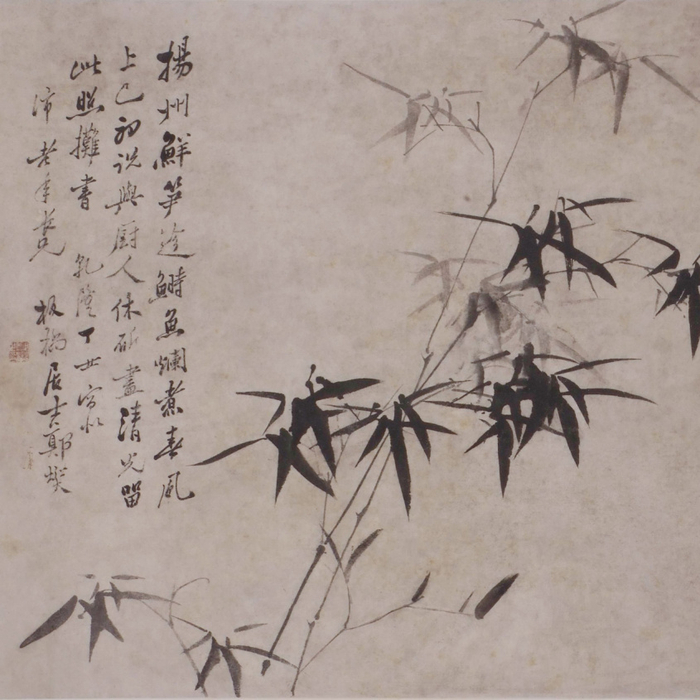 揚州鮮笋趁鰣魚爛煮春風
上巳初說與廚人休斫盡清光留
此照攤書 乾隆丁丑寫似
沛老年兄 板橋居士鄭燮